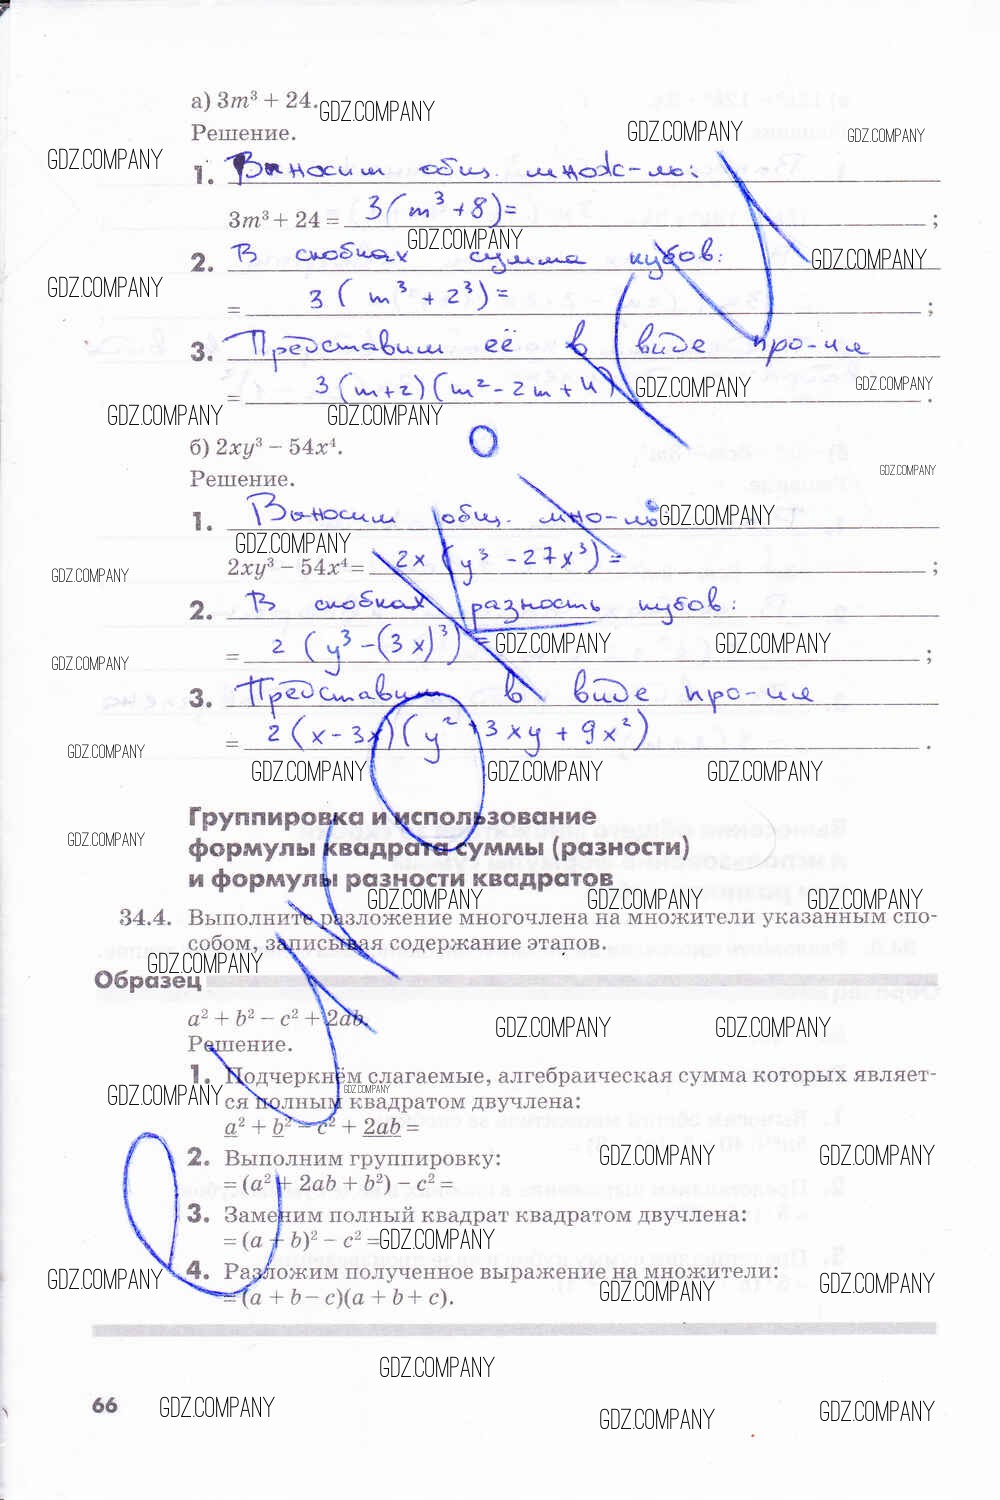 а) 3m³ + 24.
GDZ.COMPANY
Решение.
GDZ.COMPANY
GDZ.COMPANY
GDZ.COMPANY
1. Выносим общ. множ-ль:
3m³ + 24 = 3(m³+8)= ;
GDZ.COMPANY
2. В скобках сумма кубов:
GDZ.COMPANY
GDZ.COMPANY
= 3(m³+2³)= ;
3. Представим её в виде про-ия
= 3(m+2)(m²-2m+4) .
GDZ.COMPANY
GDZ.COMPANY
GDZ.COMPANY
GDZ.COMPANY
б) 2xy³ – 54x⁴.
GDZ.COMPANY
Решение.
1. Выносим общ. мно-ль
GDZ.COMPANY
GDZ.COMPANY
2xy³ – 54x⁴ = 2x(y³-27x³)= ;
GDZ.COMPANY
2. В скобках разность кубов:
= 2(y³-(3x)³)= ;
GDZ.COMPANY
GDZ.COMPANY
GDZ.COMPANY
3. Представим в виде про-ия
= 2(x-3x)(y²+3xy+9x²) .
GDZ.COMPANY
GDZ.COMPANY
GDZ.COMPANY
GDZ.COMPANY
Группировка и использование
GDZ.COMPANY
формулы квадрата суммы (разности)
и формулы разности квадратов
GDZ.COMPANY
GDZ.COMPANY
GDZ.COMPANY
34.4. Выполните разложение многочлена на множители указанным спо-
собом, записывая содержание этапов.
GDZ.COMPANY
Образец
a² + b² – c² + 2ab.
GDZ.COMPANY
GDZ.COMPANY
Решение.
1. Подчеркнём слагаемые, алгебраическая сумма которых являет-
GDZ.COMPANY
GDZ.COMPANY
ся полным квадратом двучлена:
a² + b² – c² + 2ab =
2. Выполним группировку:
GDZ.COMPANY
GDZ.COMPANY
= (a² + 2ab + b²) – c² =
3. Заменим полный квадрат квадратом двучлена:
= (a + b)² – c² =
GDZ.COMPANY
4. Разложим полученное выражение на множители:
GDZ.COMPANY
GDZ.COMPANY
GDZ.COMPANY
= (a + b – c)(a + b + c).
GDZ.COMPANY
66
GDZ.COMPANY
GDZ.COMPANY
GDZ.COMPANY